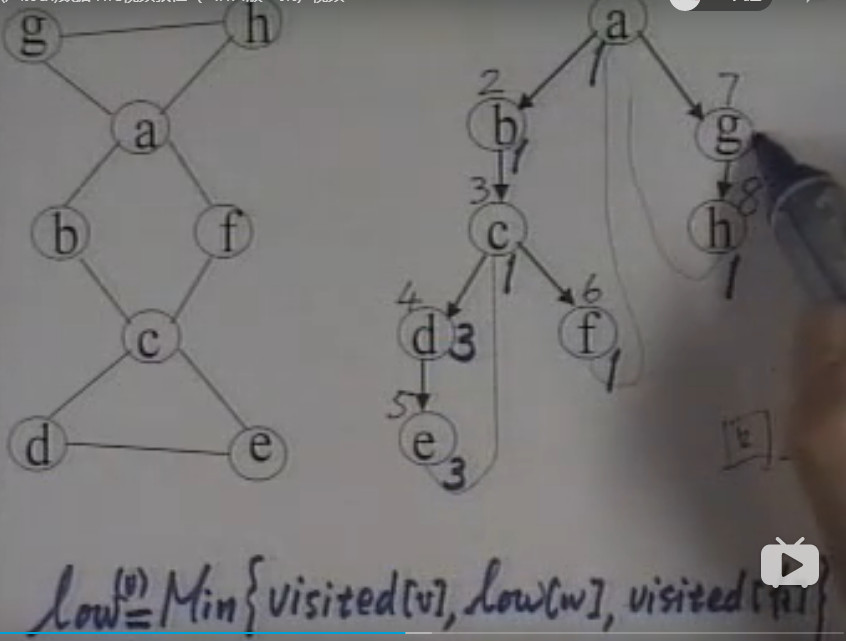 g h
a
b f
c
d e
a
1
2 7
b 1 g
3 8
c 1 h 1
4 6
d 3 f 1
5
e 3
k
low(v)=Min{visited[v], low[w], visited[k]}